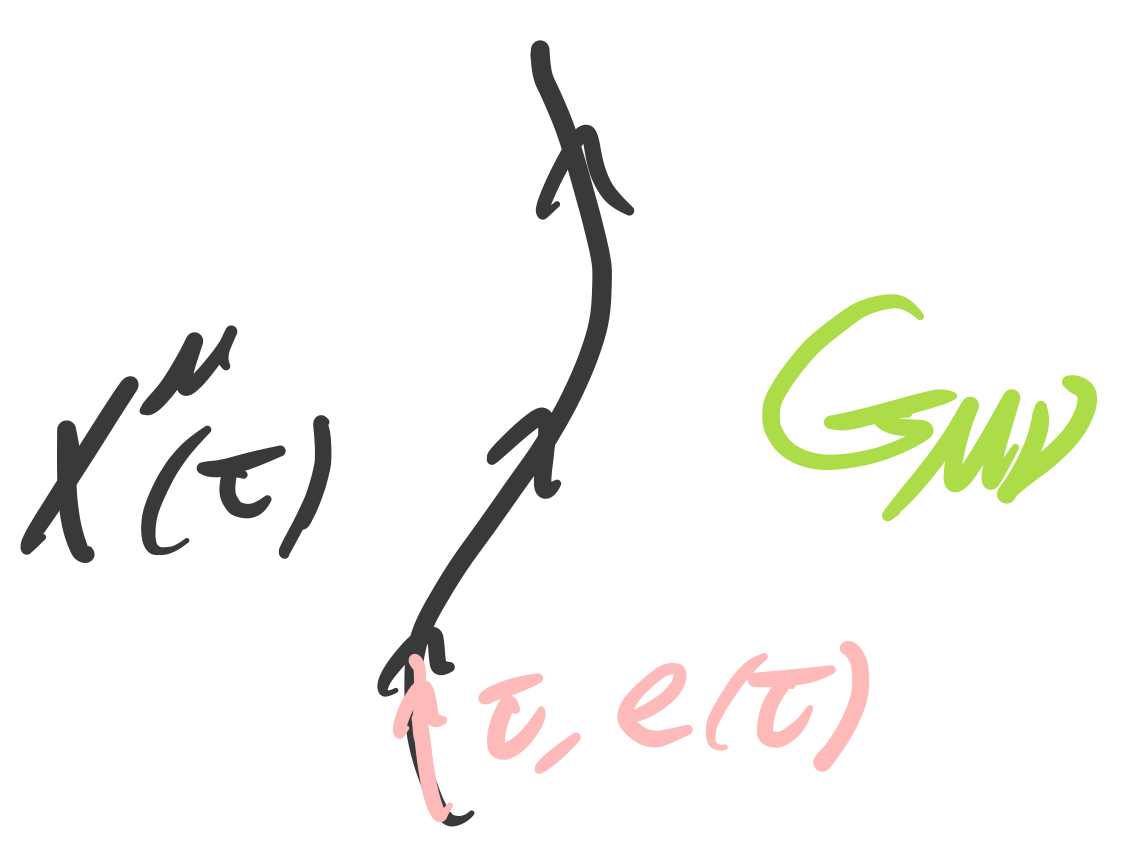 X^μ(τ)
G_μν
τ, e(τ)